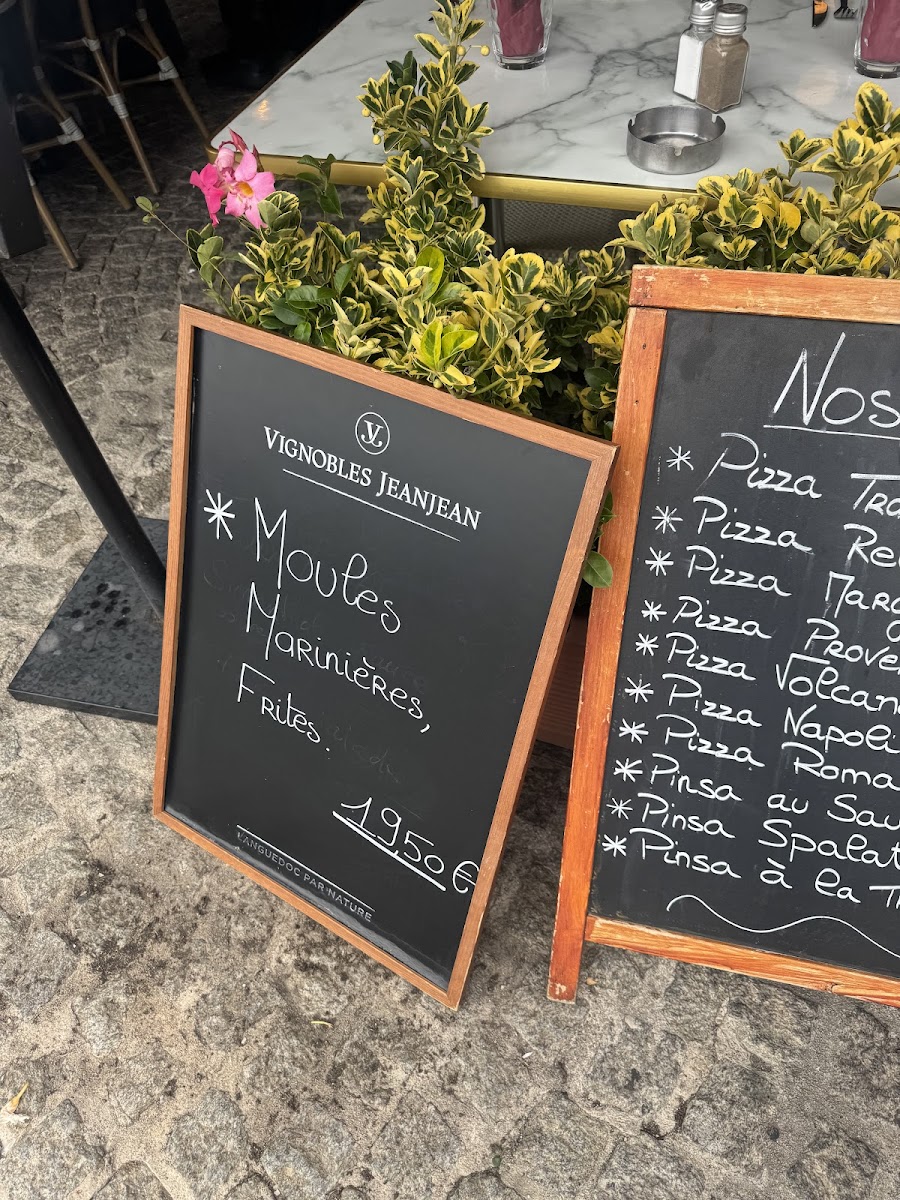 VIGNOBLES JEANJEAN
* Moules
Marinières,
Frites.
19,50 €
LANGUEDOC PAR NATURE
Nos
* Pizza
* Pizza
* Pizza
* Pizza
* Pizza
* Pizza Napoli
* Pizza Roma
* Pinsa au
* Pinsa
* Pinsa à la